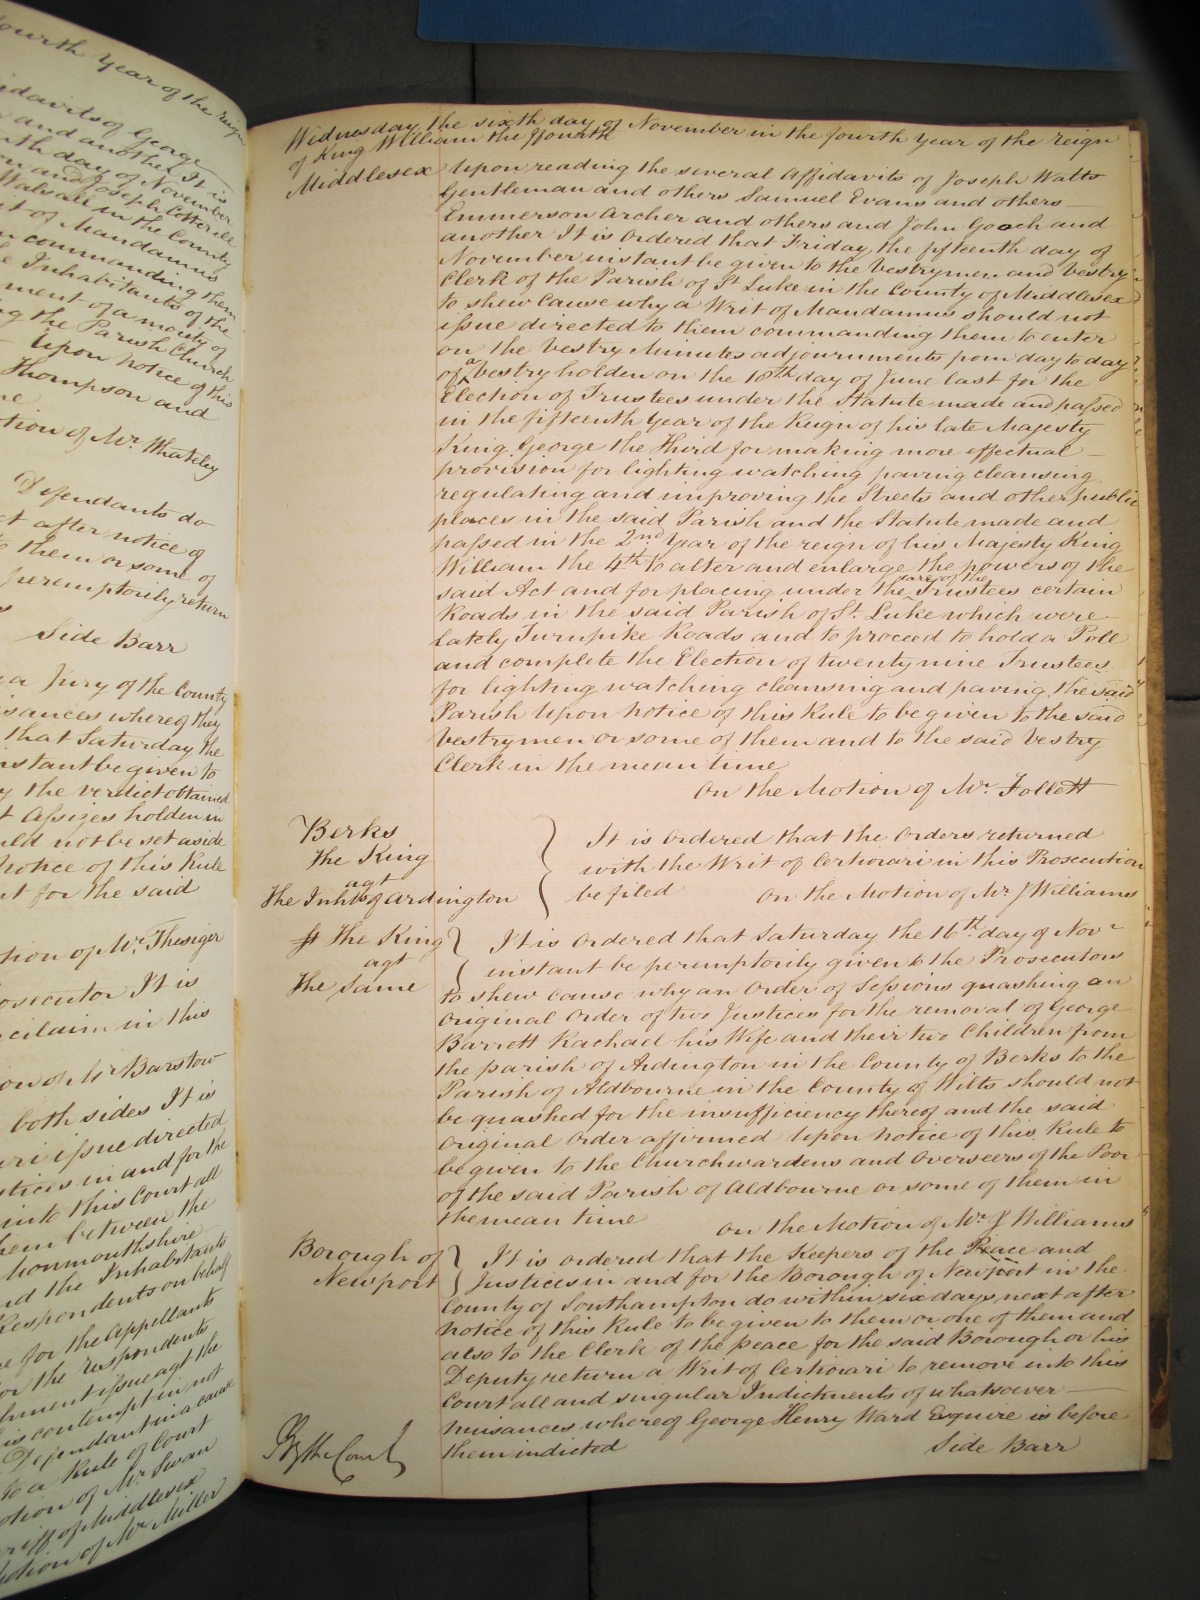 fourth Year of the reign
idavits of George
and another It is
nth day of November
on and Joseph Cotterill
Walsall in the County
it of Mandamus
commanding them
e Inhabitants of the
ment of a moiety of
ng the Parish Church
Upon notice of this
Thompson and
ne
otion of Mr. Whateley
Defendants do
ct after notice of
to them or some of
peremptorily return
Side Barr
y a Jury of the County
isances whereof they
that Saturday the
nstant be given to
y the verdict obtained
t Assizes holden in
uld not be set aside
notice of this Rule
nt for the said
tion of Mr. Thesiger
osecutor It is
cilaim in this
on of Mr Barstow
both sides It is
ari issue directed
stices in and for the
into this Court all
hem between the
Monmouthshire
nd the Inhabitants
Respondents on behalf
e for the Appellants
or the respondents
hment issue agt the
is contempt in not
Defendant in a cause
to a Rule of Court
otion of Mr. Swan
riff of Middlesex
otion of Mr Miller
Widnesday the sixth day of November in the fourth Year of the reign
of King William the ffourth
Middlesex Upon reading the several Affidavits of Joseph Watts
Gentleman and others Samuel Evans and others
Emmerson Archer and others and John Gooch and
another It is Ordered that Friday the fifteenth day of
November instant be given to the Vestrymen and Vestry
Clerk of the Parish of St Luke in the County of Middlesex
to shew Cause why a Writ of Mandamus should not
issue directed to them commanding them to enter
on the Vestry Minutes adjournments from day to day
of a Vestry holden on the 18th day of June last for the
Election of Trustees under the Statute made and passed
in the fifteenth Year of the Reign of his late Majesty
King George the Third for making more effectual
provision for lighting watching paving cleansing
regulating and improving the Streets and other public
places in the said Parish and the Statute made and
passed in the 2nd Year of the reign of his Majesty King
William the 4th to alter and enlarge the powers of the
said Act and for placing under the care of the Trustees certain
Roads in the said Parish of St. Luke which were
lately Turnpike Roads and to proceed to hold a Poll
and complete the Election of twenty nine Trustees
for lighting watching cleansing and paving the said
Parish Upon notice of this Rule to be given to the said
Vestrymen or some of them and to the said Vestry
Clerk in the mean time
On the Motion of Mr. Follett
Berks
The King
agt
The Inhts of Ardington
It is Ordered that the Orders returned
with the Writ of Certiorari in this Prosecution
be filed On the Motion of Mr J Williams
The King
agt
The Same
It is Ordered that Saturday the 16th day of Novr
instant be peremptorily given to the Prosecutors
to shew cause why an Order of Sessions quashing an
Original Order of two Justices for the removal of George
Barrett Rachael his Wife and their two Children from
the parish of Ardington in the County of Berks to the
Parish of Aldbourne in the County of Wilts should not
be quashed for the insufficiency thereof and the said
Original Order affirmed Upon notice of this Rule to
be given to the Churchwardens and Overseers of the Poor
of the said Parish of Aldbourne or some of them in
the mean time On the Motion of Mr. J Williams
Borough of
Newport
It is ordered that the Keepers of the Peace and
Justices in and for the Borough of Newport in the
County of Southampton do within six days next after
notice of this Rule to be given to them or one of them and
also to the Clerk of the peace for the said Borough or his
Deputy return a Writ of Certiorari to remove into this
Court all and singular Indictments of whatsoever
nuisances whereof George Henry Ward Esquire is before
them indicted Side Barr
By the Court